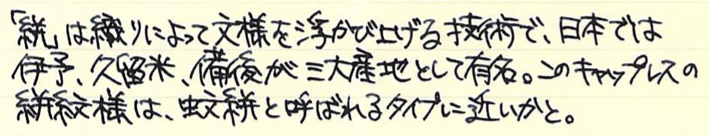 「絣」は織りによって文様を浮かび上げる技術で、日本では
伊予、久留米、備後が三大産地として有名。このキャップレスの
絣紋様は、蚊絣と呼ばれるタイプに近いかと。